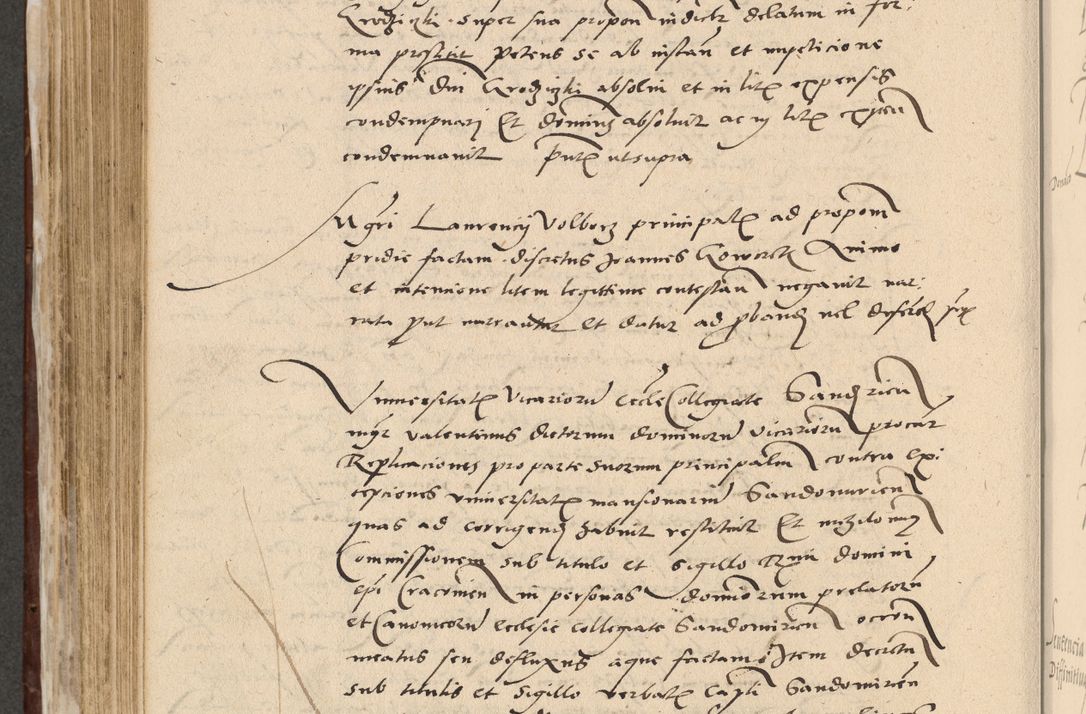 Grodziczki super sua propon in dictr delatum in for
ma prestitit Petens se ab instan et impeticione
ipsius dni Grodziczki absolui et in litis expensis
condempnari Et dominus absoluit ac in litis expensis
condemnauit Pntibus ut supra
Mgri Laurencii Volborz principalis ad propom
pridie factam discretus Joannes Animo
et intencione litem legittime contestan negauit nar
rata put narrantur Et datur ad pband vel
Vniuersitatis Vicarioru eccle Collegiate Sandzricen
mgr Valentinus dictorum dominoru vicarioru procur
Replicaciones pro parte suorum principaliu contra exi
cepciones vniuersitatis mansionariu Sandomirien
quas ad corrigend habuit restituit Et
Commissionem sub titulo et sigillo Rmi domini
epi Cracouien in personas dominorum prelatoru
et Canonicoru ecclesie collegiate Sandomirien
meatus seu defluxus aque factam Item decretu
sub titulis et sigillo verbatis Capli Sandomirien
Sentencia
Diffinitiua